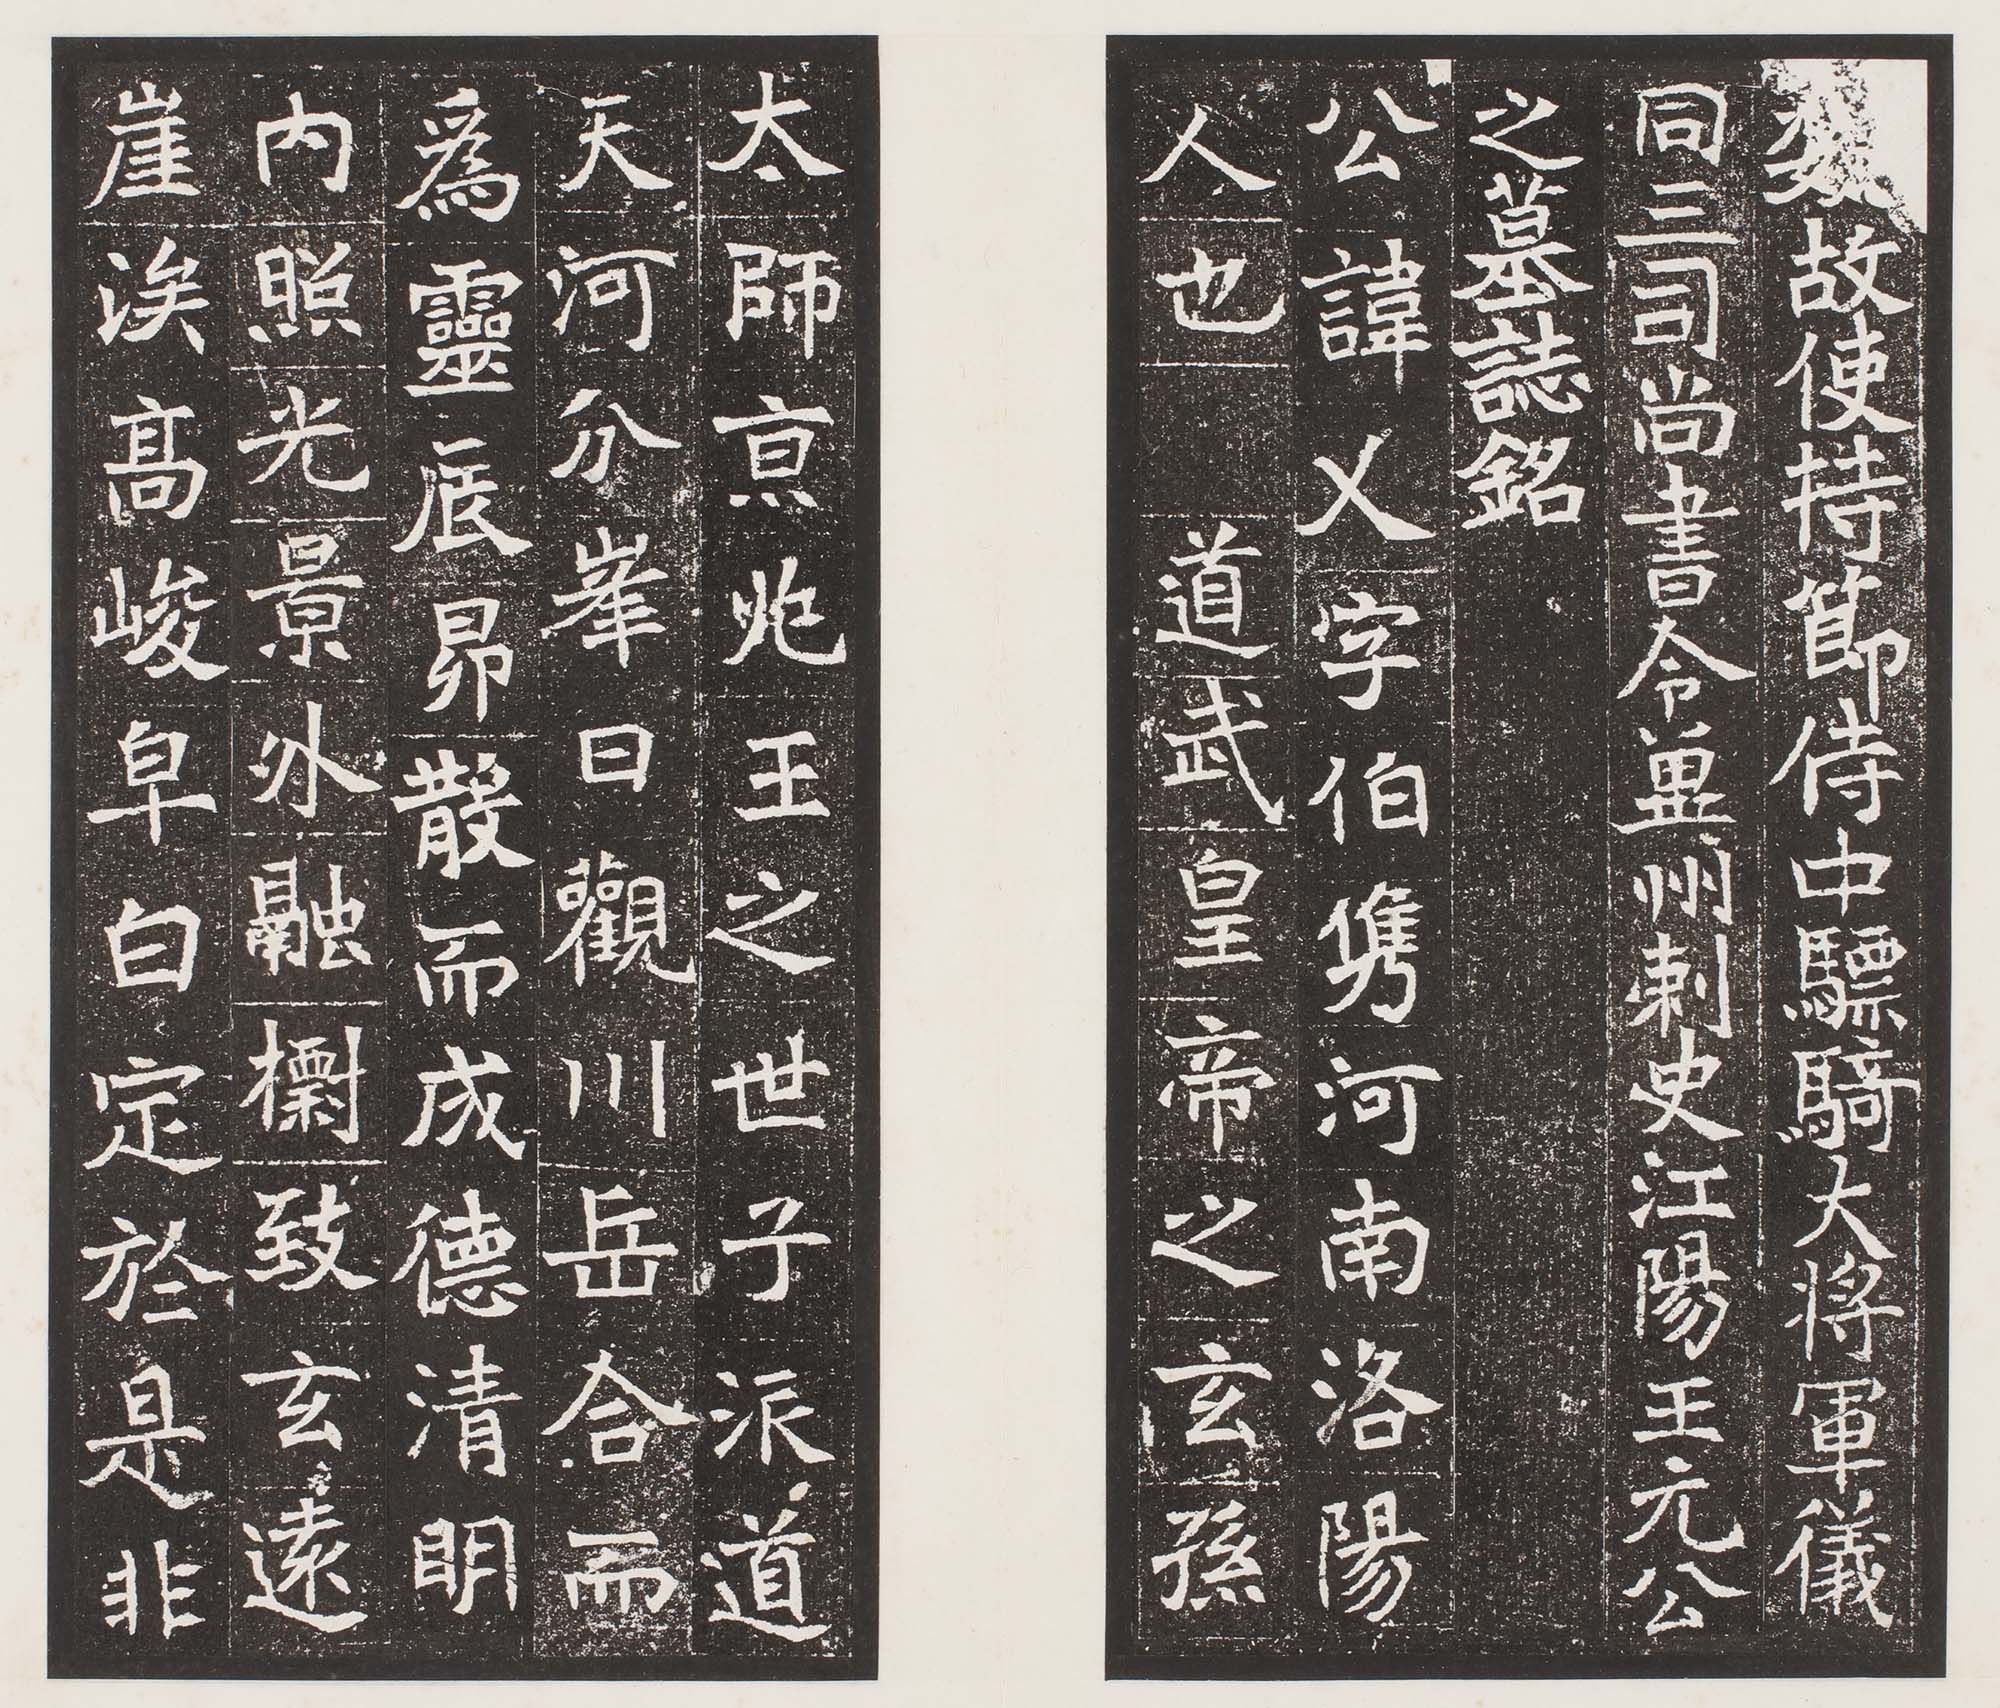 魏故使持節侍中驃騎大將軍儀
同三司尚書令冀州刺史江陽王元公
之墓誌銘
公諱乂字伯儁河南洛陽
人也 道武皇帝之玄孫
太師京兆王之世子派道
天河分峯日觀川岳合而
爲靈辰昴散而成德清明
內照光景外融檦致玄遠
崖涘高峻皁白定於是非